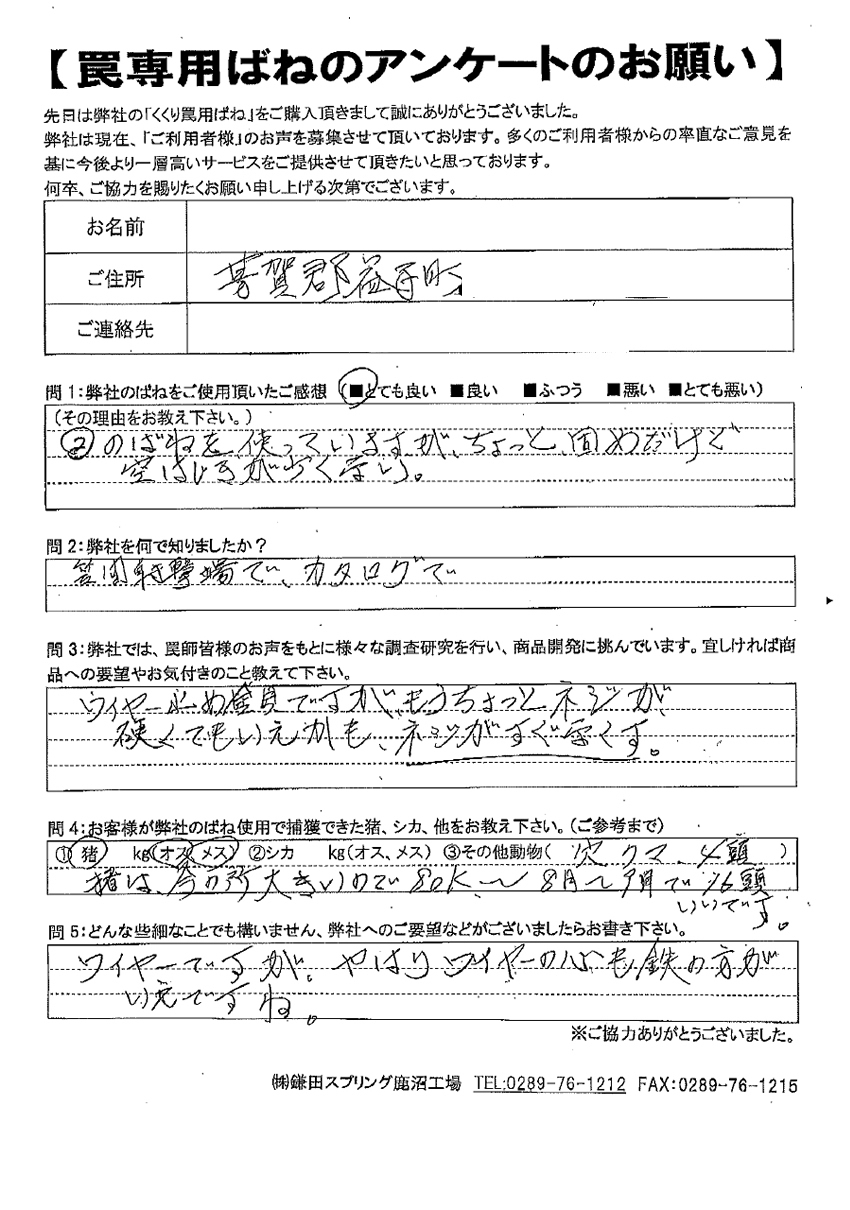 【罠専用ばねのアンケートのお願い】
先日は弊社の「くくり罠用ばね」をご購入頂きまして誠にありがとうございました。
弊社は現在、「ご利用者様」のお声を募集させて頂いております。多くのご利用者様からの率直なご意見を
基に今後より一層高いサービスをご提供させて頂きたいと思っております。
何卒、ご協力を賜りたくお願い申し上げる次第でございます。
お名前
ご住所 芳賀郡益子町
ご連絡先
問1:弊社のばねをご使用頂いたご感想 (■とても良い ■良い ■ふつう ■悪い ■とても悪い)
(その理由をお教え下さい。)
②のばねを使っていますが、ちょっと固めだけど
空はじきが少くない。
問2:弊社を何で知りましたか?
笠間射撃場で、カタログで
問3:弊社では、罠師皆様のお声をもとに様々な調査研究を行い、商品開発に挑んでいます。宜しければ商
品への要望やお気付きのこと教えて下さい。
ワイヤー止め金具ですが、もうちょっとネジが、
硬くてもいえかも、ネジがすぐ
問4:お客様が弊社のばね使用で捕獲できた猪、シカ、他をお教え下さい。(ご参考まで)
①猪 kg(オス、メス) ②シカ kg(オス、メス) ③その他動物( 穴クマ、4頭 )
猪は、今の所大きいので80K〜8月〜 で16頭
いいです。
問5:どんな些細なことでも構いません、弊社へのご要望などがございましたらお書き下さい。
ワイヤーですが、やはりワイヤーの心も鉄の方が
いえですね。
※ご協力ありがとうございました。
㈱鎌田スプリング鹿沼工場 TEL:0289-76-1212 FAX:0289-76-1215